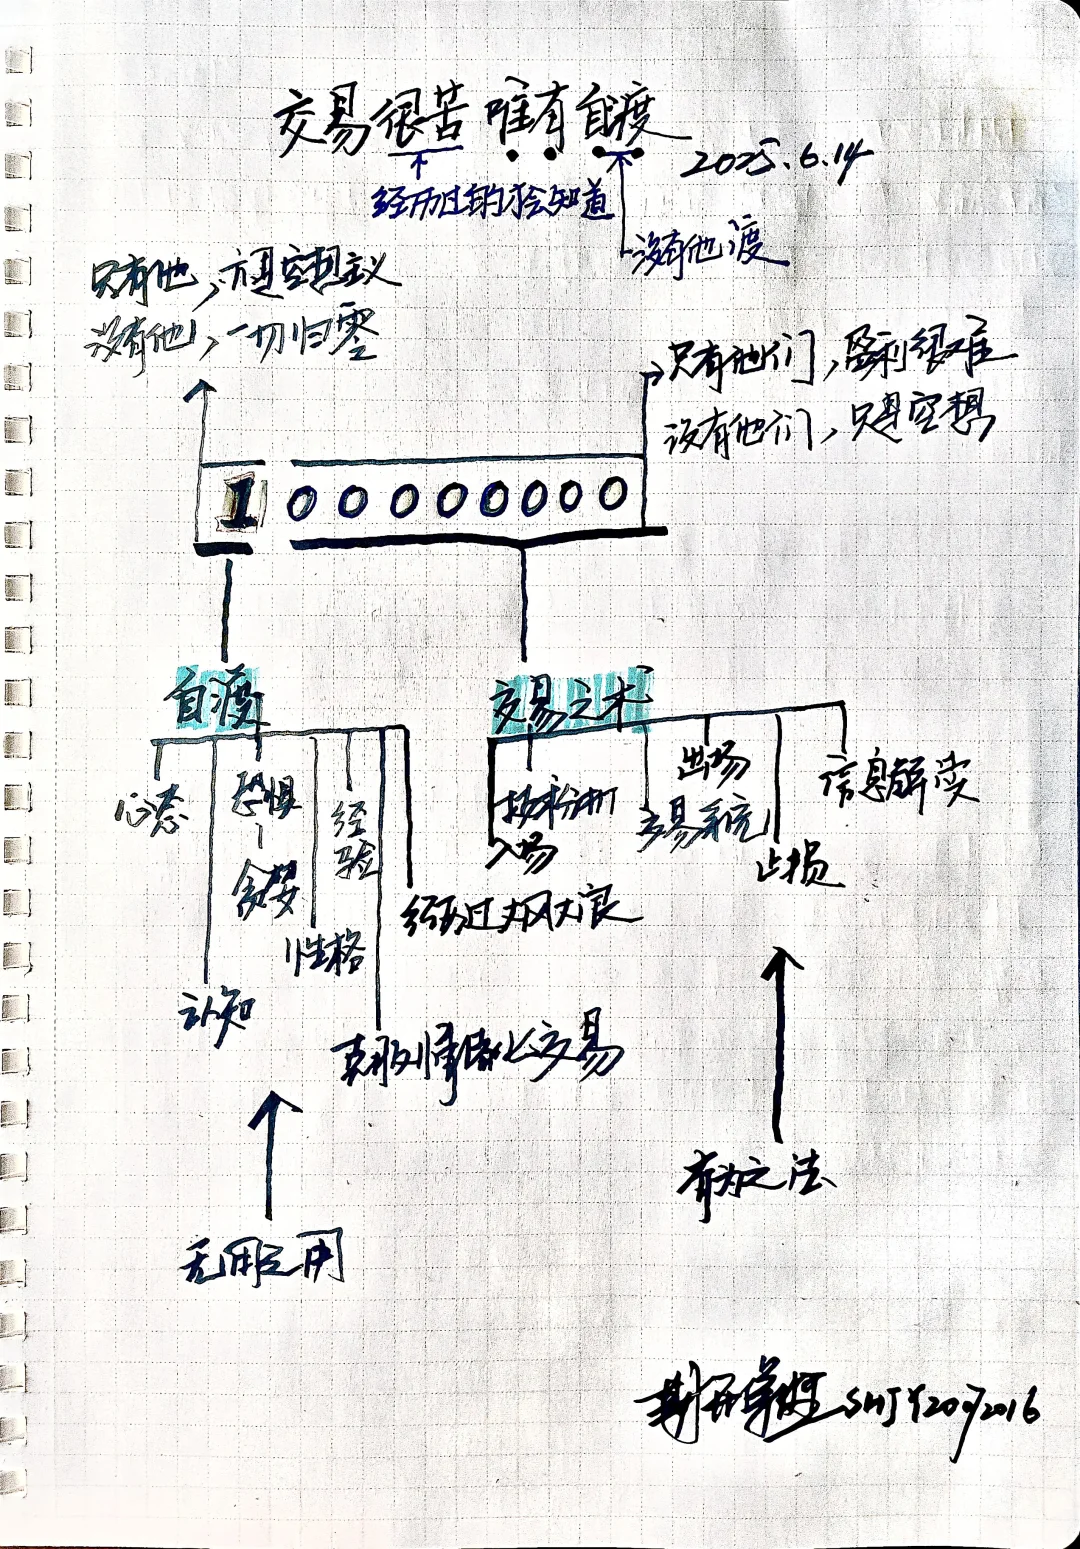 交易很苦 唯有自渡
2025.6.14
经历过的才会知道
没有他渡
只有他,方是空想主义
没有他,一切归零
只有他们,盈利很难
没有他们,只是空想
1 0 0 0 0 0 0 0
自渡
交易之术
心态
恐惧
贪婪
经验
性格
认知
经历过大风大浪
克服情绪化交易
技术分析
入场
交易系统
出场
止损
信息解读
有为之法
无用之用